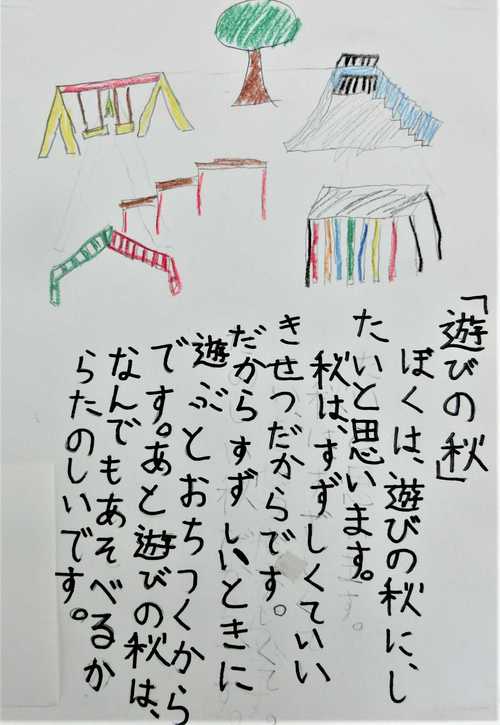 「遊びの秋」
ぼくは、遊びの秋に、し
たいと思います。
秋は、すずしくていい
きせつだからです。
だからすずしいときに
遊ぶとおちつくから
です。あと遊びの秋は、
なんでもあそべるか
らたのしいです。